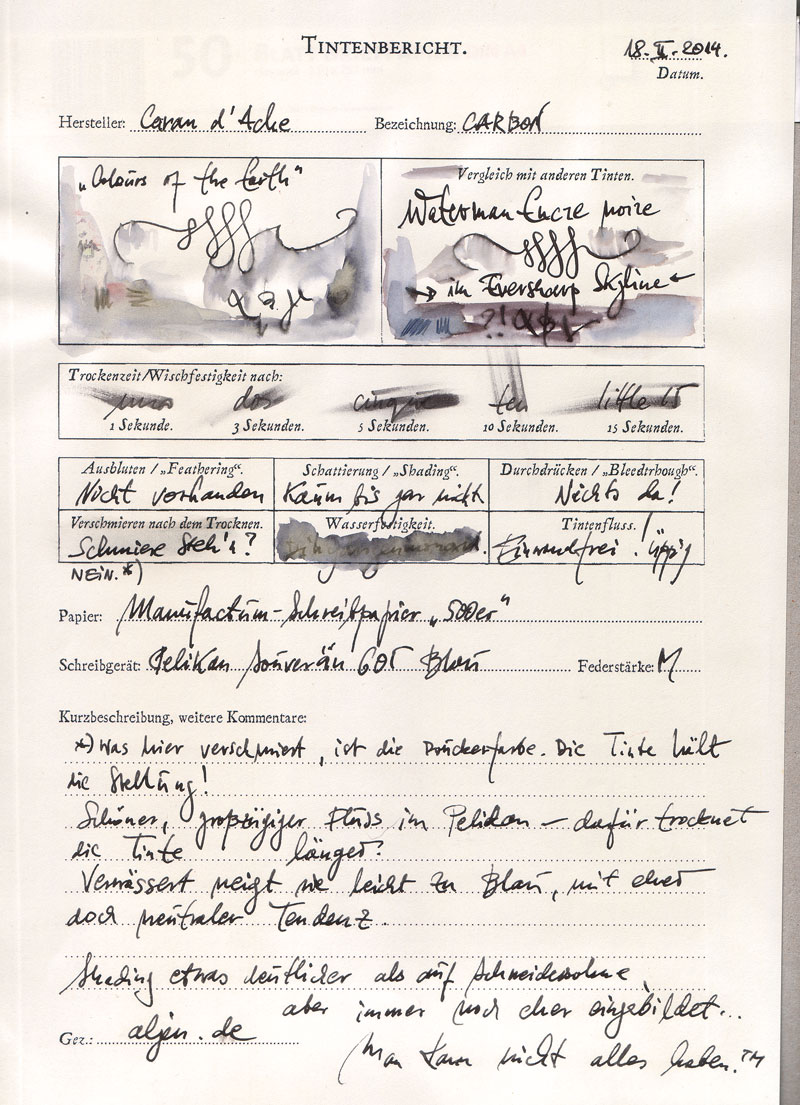 TINTENBERICHT.
18. II. 2014.
Datum.
Hersteller: Caran d'Ache Bezeichnung: CARBON
„Colours of the Earth“
Vergleich mit anderen Tinten.
Waterman Encre noire
→ im Eversharp Skyline ←
?!
Trockenzeit/Wischfestigkeit nach:
uno dos cinque ten little 15
1 Sekunde. 3 Sekunden. 5 Sekunden. 10 Sekunden. 15 Sekunden.
Ausbluten / „Feathering“. Schattierung / „Shading“. Durchdrücken / „Bleedtrhough“.
Nicht vorhanden Kaum bis gar nicht Nichts da!
Verschmieren nach dem Trocknen. Wasserfestigkeit. Tintenfluss.
Schmiere steh'n? Einwandfrei! Üppig!
NEIN.*)
Papier: Manufactum-Schreibpapier „500er“
Schreibgerät: Pelikan Souverän 605 Blau Federstärke: M
Kurzbeschreibung, weitere Kommentare:
*) Was hier verschmiert, ist die Druckerfarbe. Die Tinte hält
die Stellung!
Schöner, großzügiger Fluss im Pelikan – dafür trocknet
die Tinte länger?
Verwässert neigt sie leicht zu Blau, mit eher
doch neutraler Tendenz.
Shading etwas deutlicher als auf Schneidersöhne,
aber immer noch eher eingebildet...
Gez.: aljen.de
Man kann nicht alles haben.™